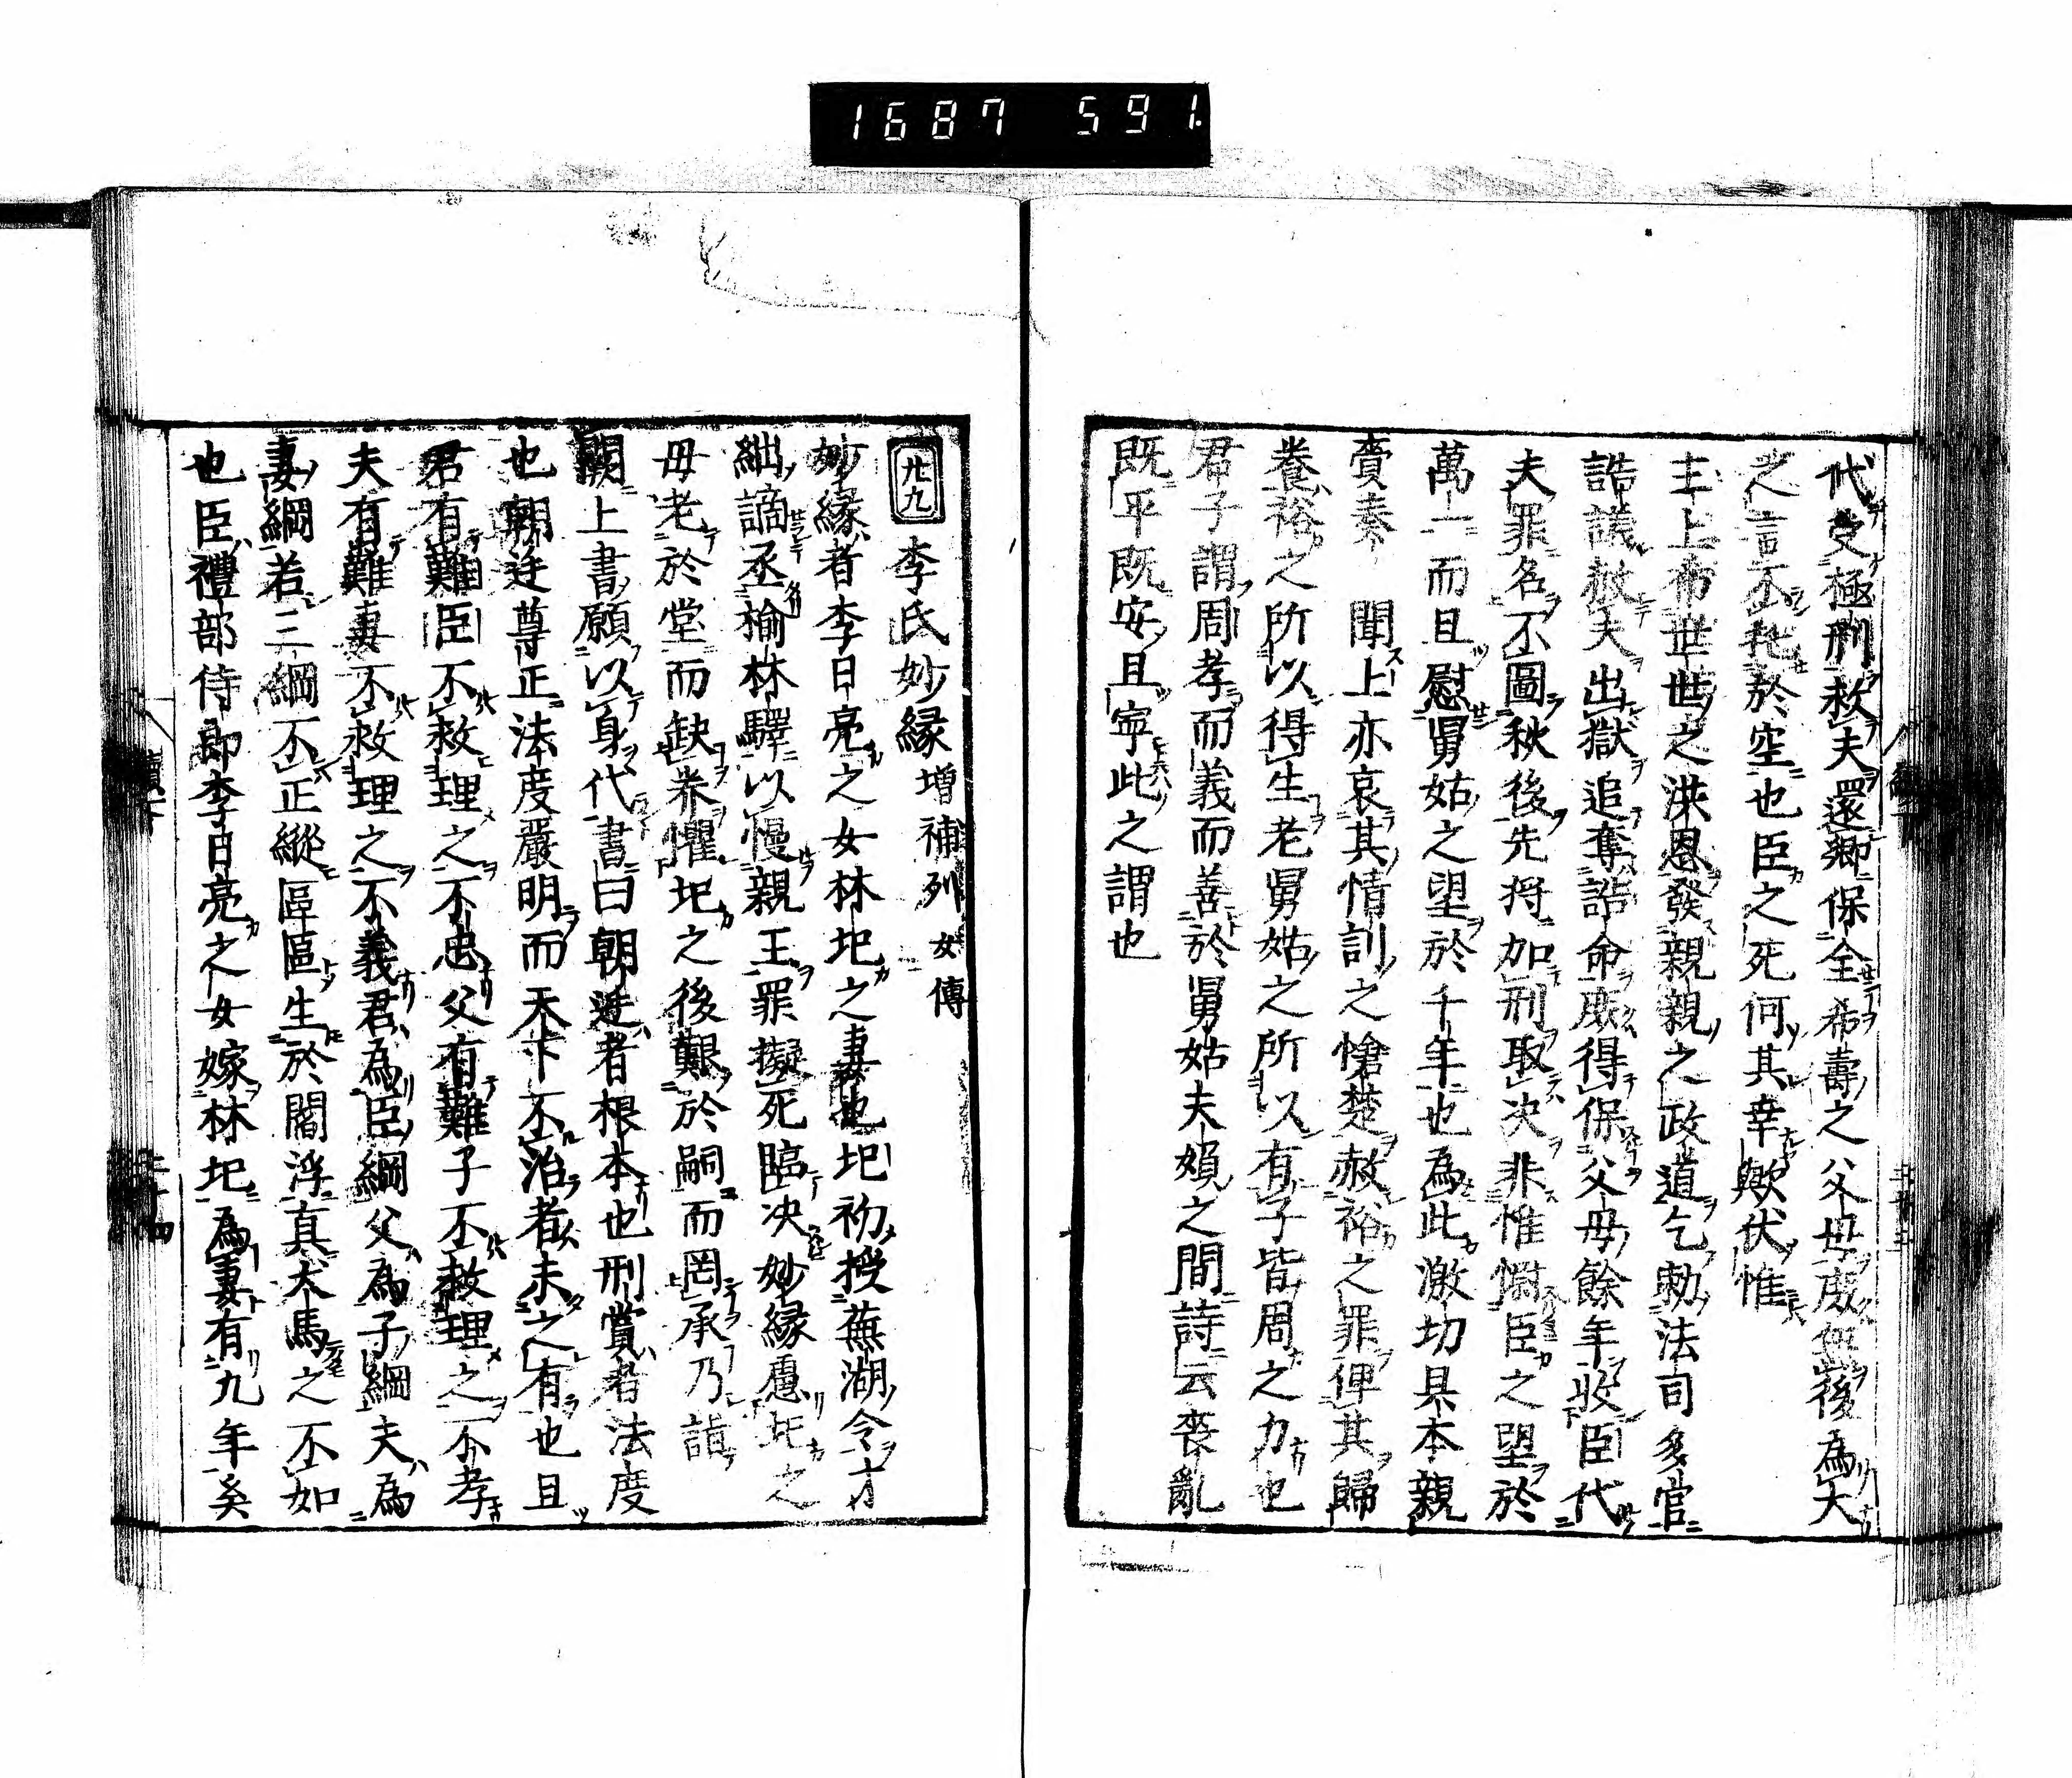 1687 591.
代受極刑赦夫還鄉保全希壽之父母庶無後為大
之言不托於空也臣之死何其幸歟伏惟
主上希世世之洪恩發親親之政道乞勅法司多官
誥議赦夫出獄追奪誥命庶得保父母餘年收臣代
夫罪名不圖秋後先将加刑取决非惟憫臣之望於
萬一而且慰舅姑之望於千年也為此激切具本親
賫奏聞上亦哀其情訓之愴楚赦裕之罪俾其歸
養裕之所以得生老舅姑之所以有子皆周之力也
君子謂周孝而義而善於舅姑夫婦之間詩云喪亂
既平既安且寧此之謂也
卅九 李氏妙縁 増補列女傳
妙縁者李日亮之女林圯之妻也圯初授蕪湖令才
絀謫丞榆林驛以慢親王罪擬死臨决妙縁慮圯之
母老於堂而缺养懼圯之後艱於嗣而罔承乃詣
闕上書願以身代書曰朝廷者根本也刑賞者法度
也朝廷尊正法度嚴明而天下不治者未之有也且
君有難臣不救理之不忠父有難子不救理之不孝
夫有難妻不救理之不義君為臣綱父為子綱夫為
妻綱若三綱不正縱區區生於閻浮真犬馬之不如
也臣禮部侍郎李日亮之女嫁林圯為妻有九年矣